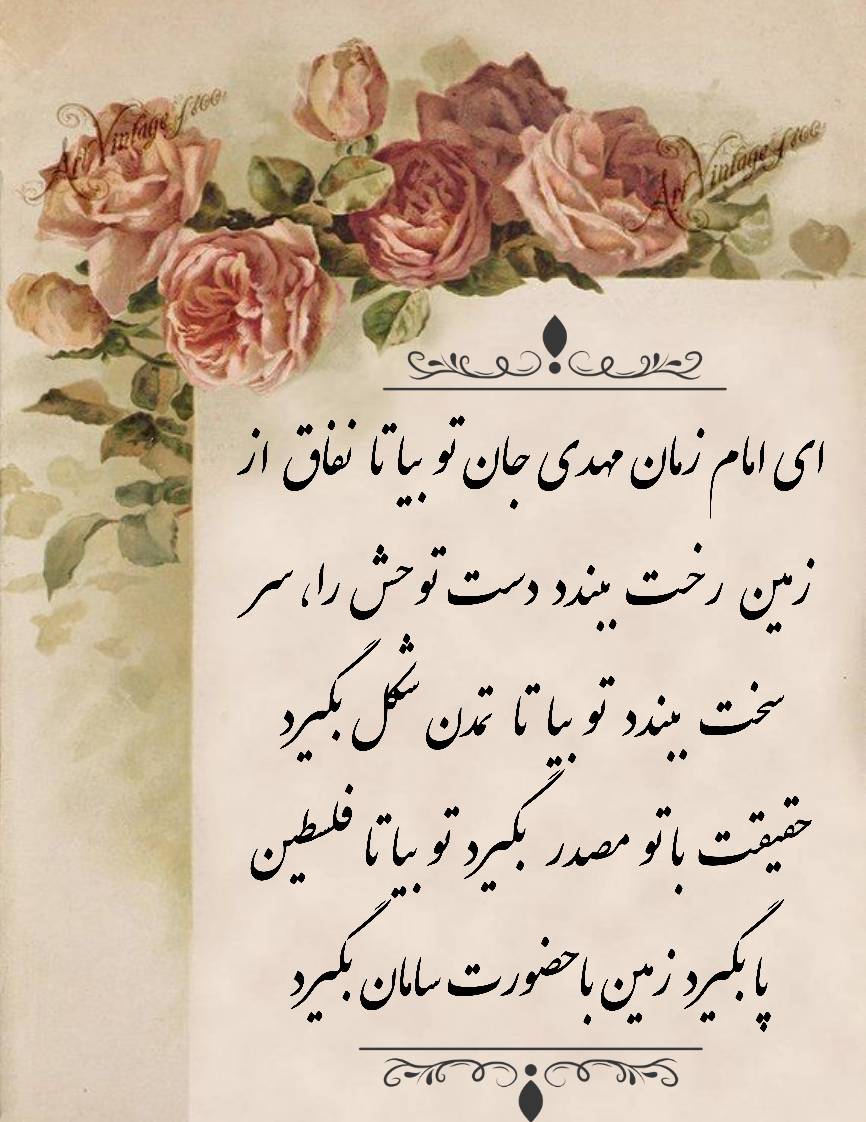 Art Vintage
Art Vintage
ای امام زمان مهدی جان تو بیا تا نفاق از
زمین رخت ببندد دست توحش را، سر
سخت ببندد تو بیا تا تمدن شکل بگیرد
حقیقت با تو مصدر بگیرد تو بیا تا فلسطین
پا بگیرد زمین با حضورت سامان بگیرد